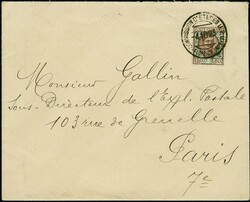 Monsieur Gallin
Sous-Directeur de l'Expl. Postale
103 rue de Grenelle
Paris
7e